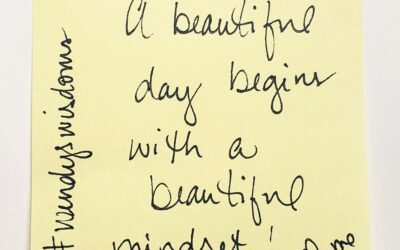 A beautiful
day begins
with a
beautiful
mindset!
#wendyswisdoms